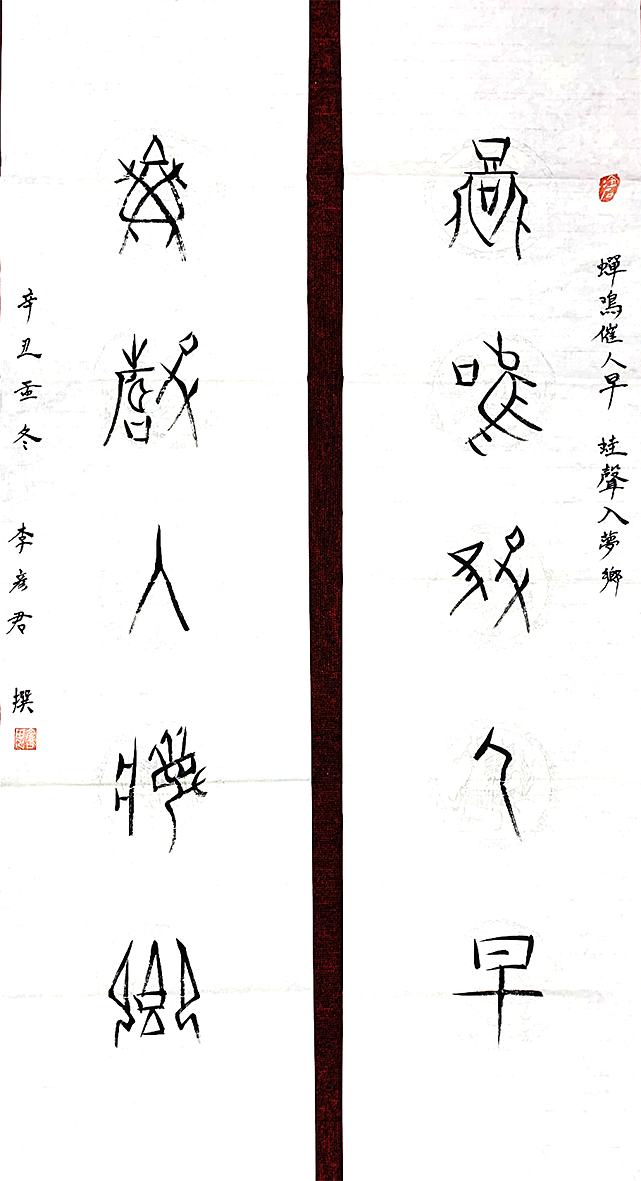 蟬鳴催人早 蛙聲入夢鄉
蟬鳴催人早
蛙聲入夢鄉
辛丑孟冬 李彦君 撰